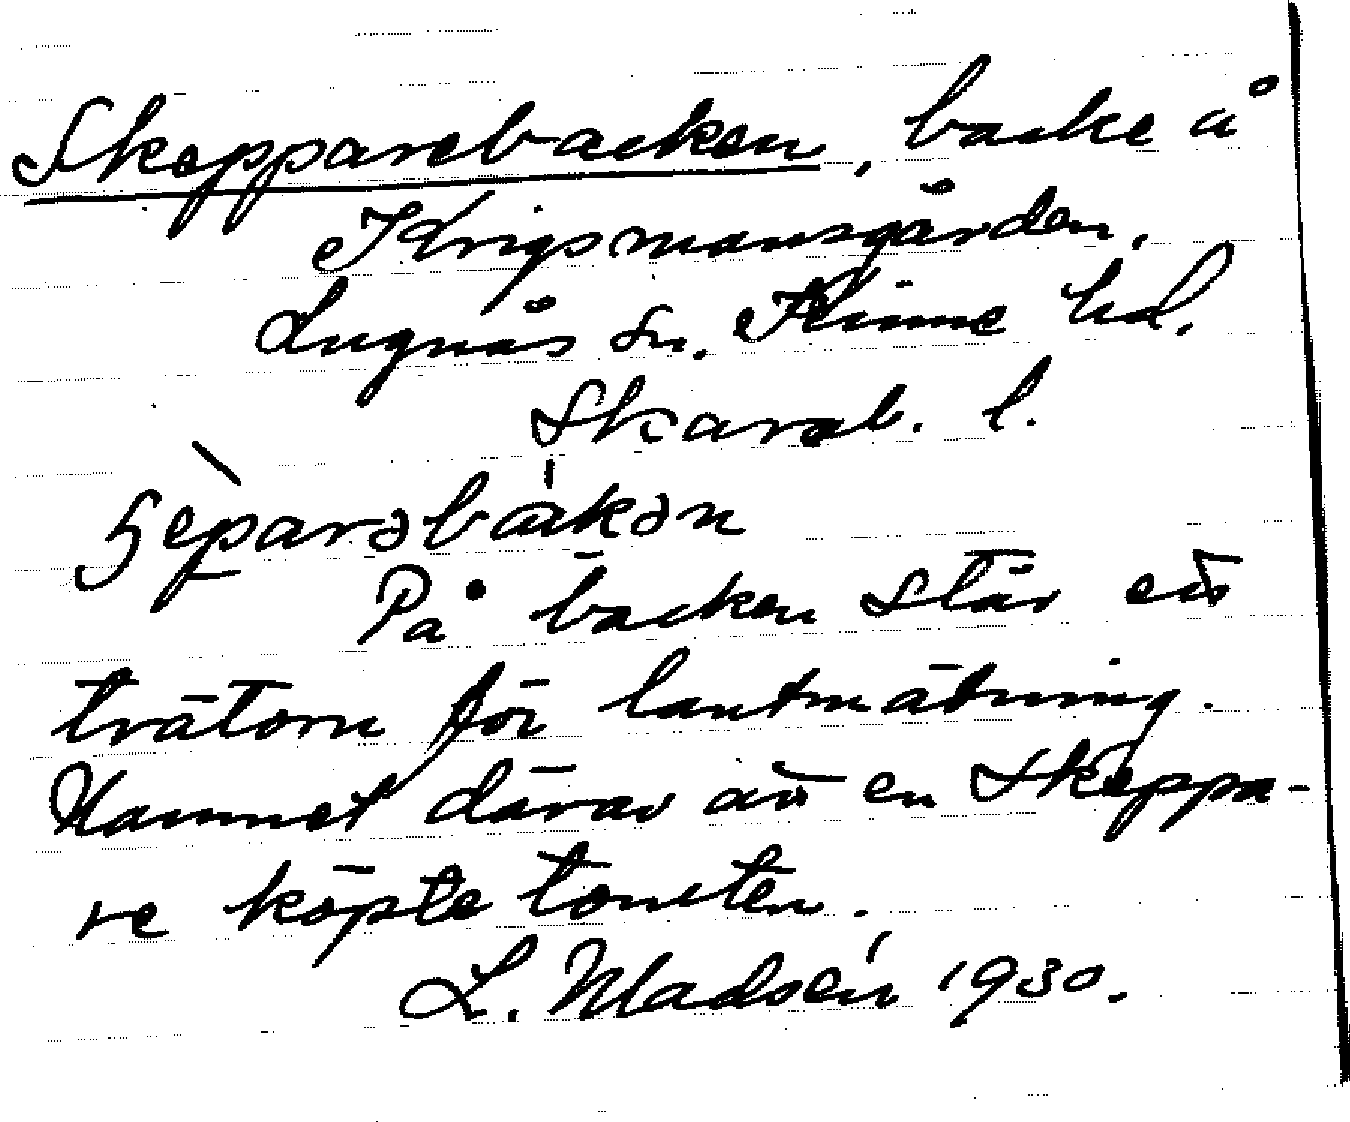 Skepparebacken, backe å
Krigsmansgården,
Lugnås sn. Kinne hd.
Skarab. l.
På backen står ett
trätorn för lantmätning.
Namnet därav att en Skeppa-
re köpte tomten.
L. Madsén 1930.